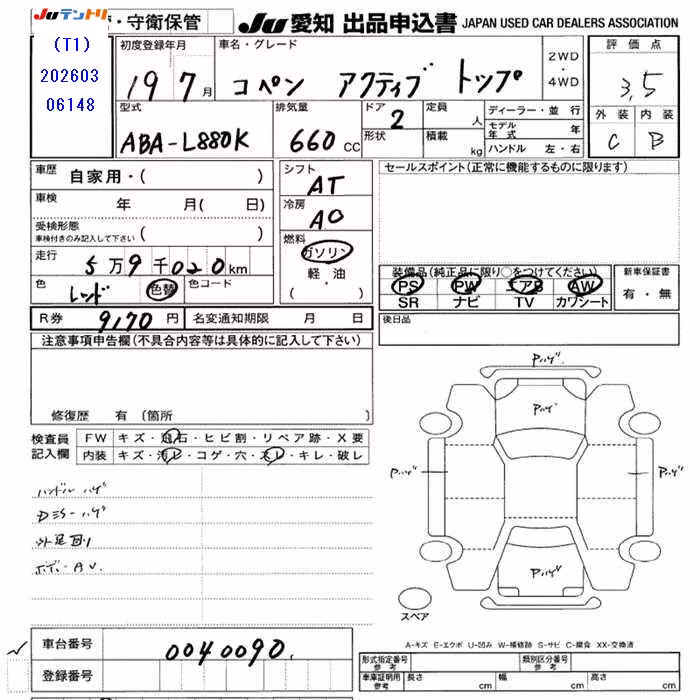 JUテントリ
(T1)
202603
06148
・守衛保管
JU 愛知 出品申込書 JAPAN USED CAR DEALERS ASSOCIATION
初度登録年月
19 7月
車名・グレード
コペン アクティブ トップ
2WD
・
4WD
評価点
3,5
外装 内装
C B
型式
ABA-L880K
排気量
660 CC
ドア
2
形状
定員
人
積載
kg
ディーラー・並 行
モデル年式 年
ハンドル 左・右
車歴
自家用・( )
車検 年 月( 日)
受検形態
車検付きのみ記入して下さい ( )
走行
5万9千020km
色
レッド 色替
色コード
シフト
AT
冷房
AC
燃料
ガソリン
軽・油
( ・ )
セールスポイント(正常に機能するものに限ります)
装備品(純正品に限り○をつけてください)
PS PW エアB AW
SR ナビ TV カワシート
新車保証書
有・無
R券 9,170円 名変通知期限 月 日
後日品
注意事項申告欄(不具合内容等は具体的に記入して下さい)
修復歴 有(箇所 )
検査員
記入欄
FW キズ・飛石・ヒビ割・リペア跡・X要
内装 キズ・汚レ・コゲ・穴・スレ・キレ・破レ
ハンドル ハゲ
外足回り
Pハゲ
Pハゲ
Pハゲ
Pハゲ
Pハゲ
スペア
A-キズ E-エクボ U-凹み W-補修跡 S-サビ C-腐食 XX-交換済
車台番号 0040090
登録番号
形式指定番号
参考
類別区分番号
参考
車庫証明用
参考
長さ cm 幅 cm 高さ cm